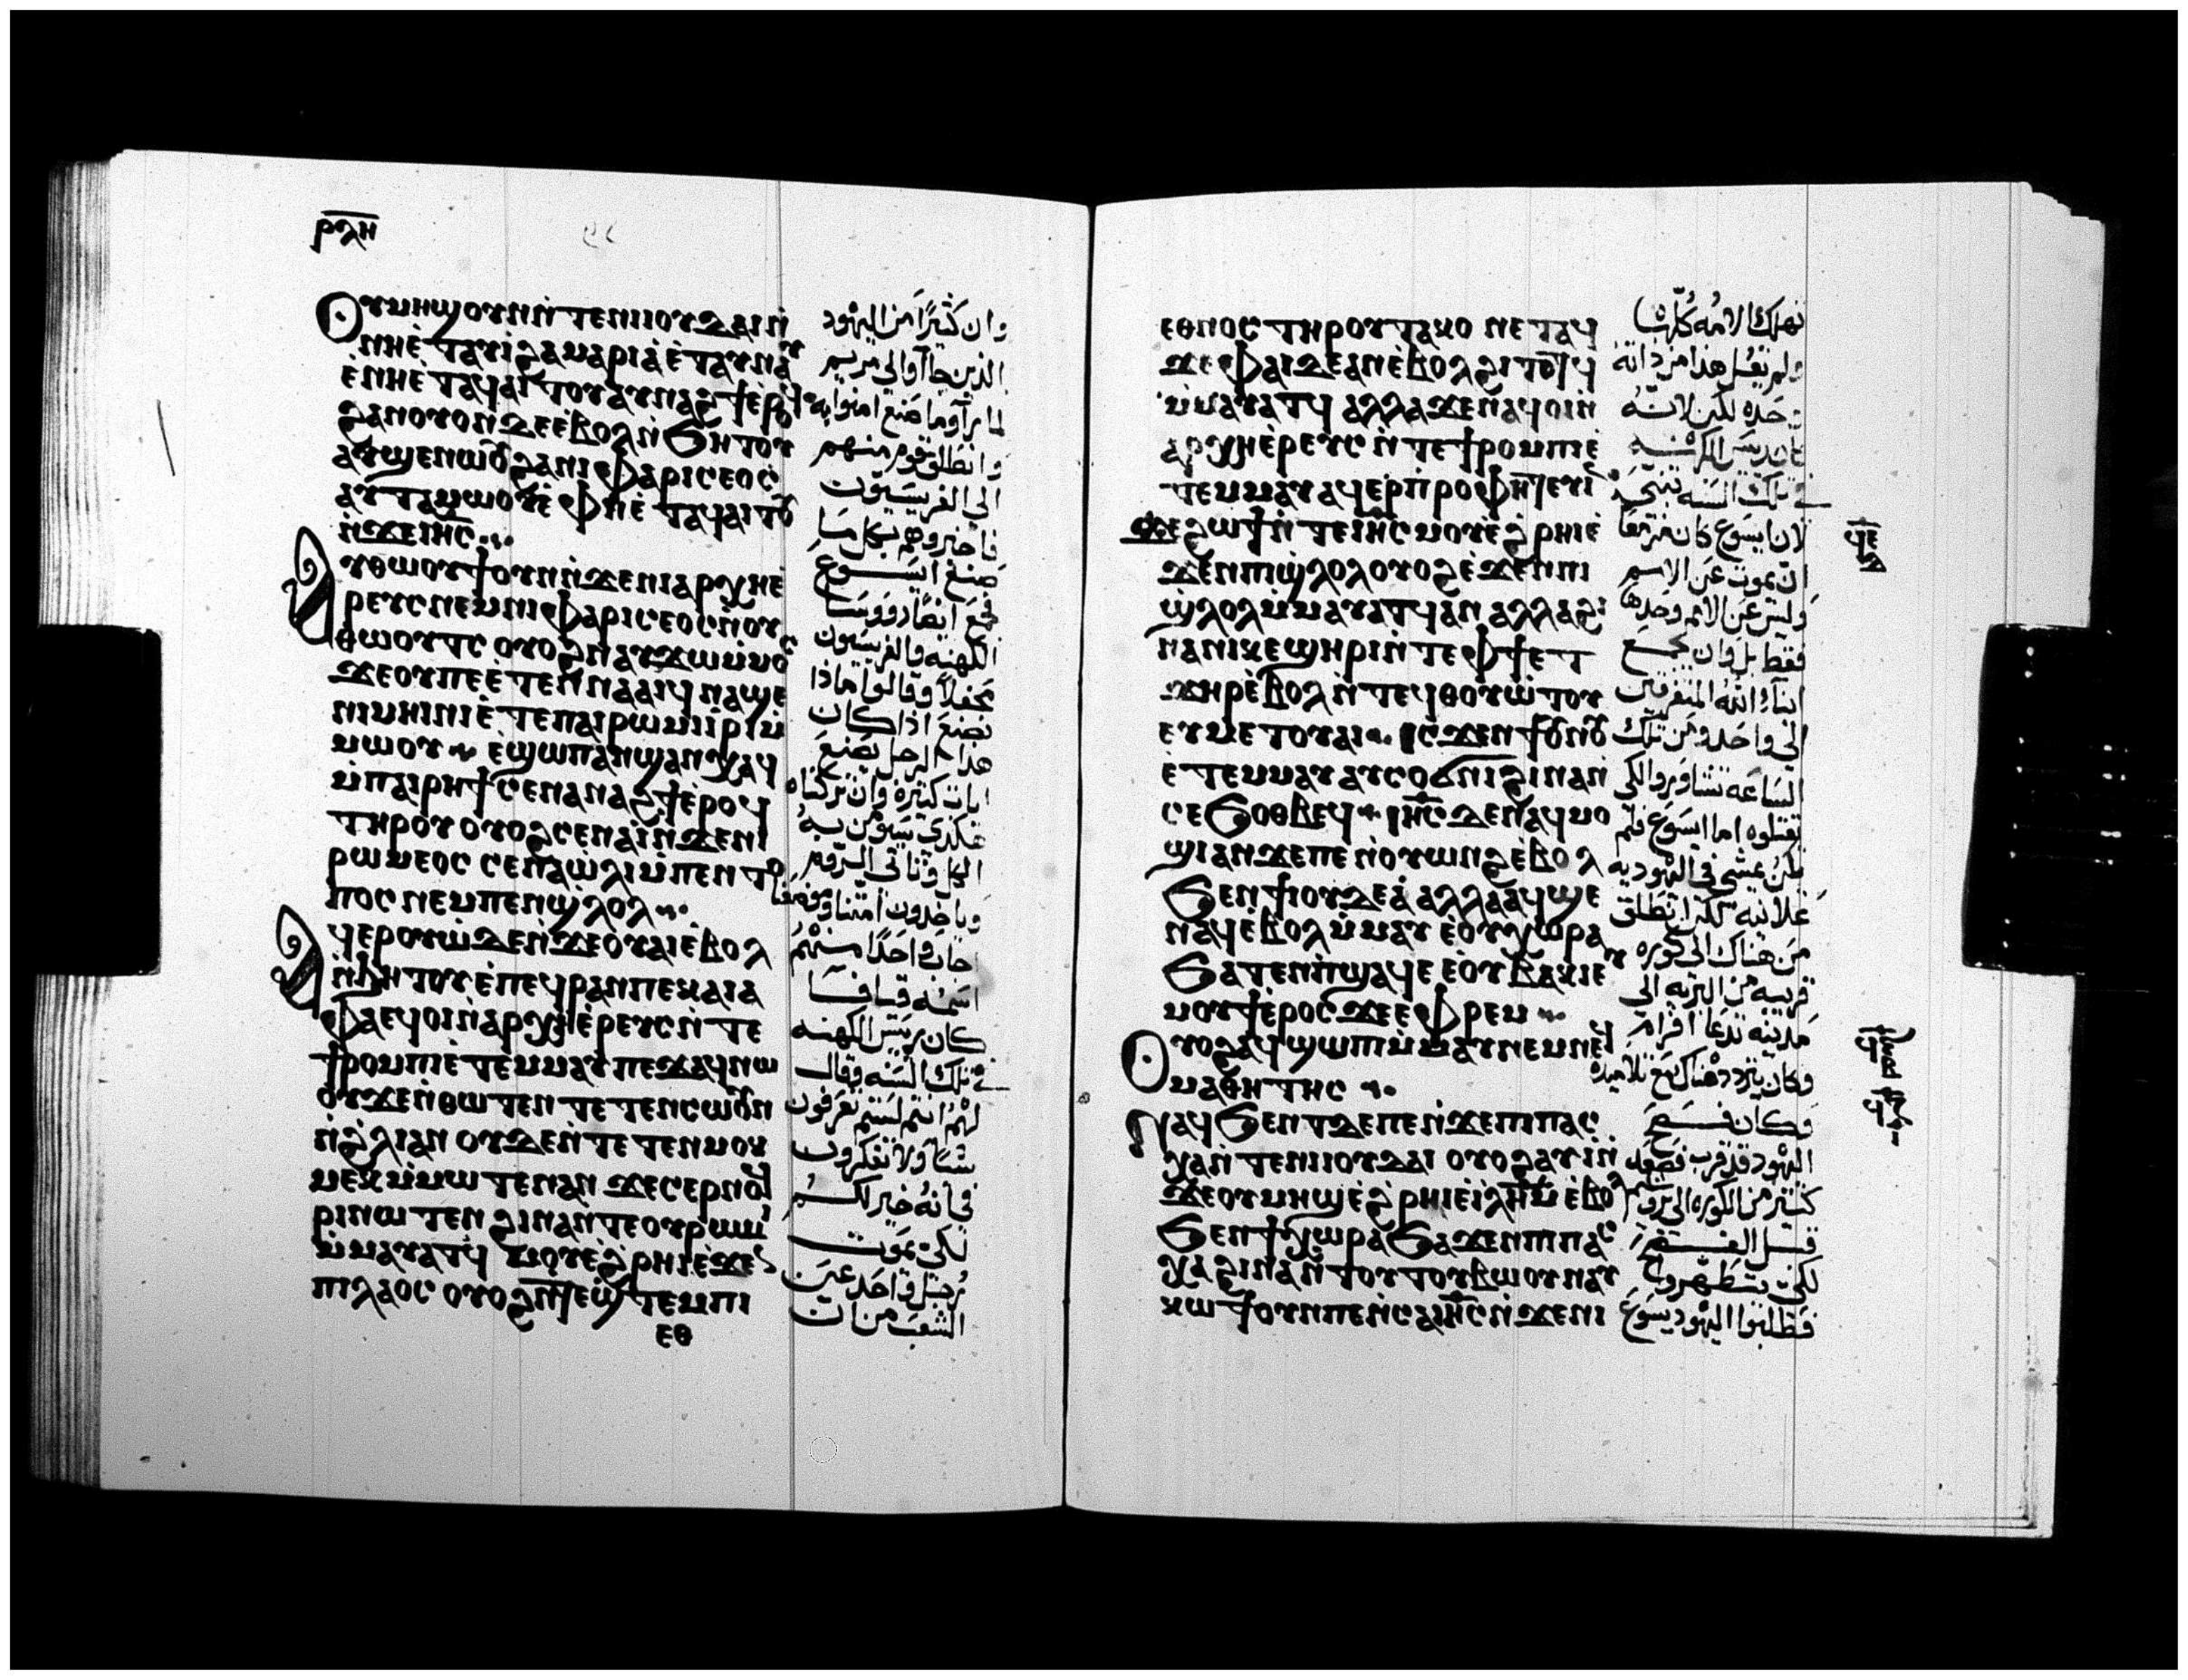 ⲣⲗⲏ
Ⲟⲩⲙⲏϣ ⲟⲩⲛ ⲛ̀ⲧⲉ ⲛⲓⲓⲟⲩⲇⲁⲓ ⲛ̀
ⲛⲏ ⲉ̀ⲧⲁⲩⲓ̀ ϩⲁ ⲙⲁⲣⲓⲁ ⲉ̀ⲧⲁⲩⲛⲁⲩ
ⲉ̀ⲛⲏ ⲉ̀ⲧⲁϥⲁⲓⲧⲟⲩ ⲁⲩⲛⲁϩϯ ⲉ̀ⲣⲟϥ
ϩⲁⲛⲟⲩⲟⲛ ⲇⲉ ⲉ̀ⲃⲟⲗ ⲛ̀ϧⲏⲧⲟⲩ
ⲁⲩϣⲉⲛⲱⲟⲩ ϩⲁ ⲛⲓⲫⲁⲣⲓⲥⲉⲟⲥ
ⲁⲩⲧⲁⲙⲱⲟⲩ ⲉ̀ⲫⲏ ⲉ̀ⲧⲁϥⲁⲓⲧⲟⲩ
ⲛ̀ϫⲉ ⲓⲏ̅ⲥ̅
Ⲁⲩⲑⲱⲟⲩϯ ⲟⲩⲛ ⲛ̀ϫⲉ ⲛⲓⲁⲣⲭⲏⲉ̀
ⲣⲉⲩⲥ ⲛⲉⲙ ⲛⲓⲫⲁⲣⲓⲥⲉⲟⲥ ⲛ̀ⲟⲩ
ⲑⲱⲟⲩⲧⲥ ⲟⲩⲟϩ ⲛⲁⲩϫⲱ ⲙ̀ⲙⲟⲥ
ϫⲉ ⲟⲩ ⲡⲉ ⲉ̀ⲧⲉⲛⲛⲁⲁⲓϥ ⲛⲁϣⲉ
ⲛⲓⲙⲏⲓⲛⲓ ⲉ̀ⲧⲉ ⲡⲁⲓⲣⲱⲙⲓ ⲓ̀ⲣⲓ ⲙ̀
ⲙⲱⲟⲩ ⲉ̀ϣⲱⲡ ⲁⲛϣⲁⲛⲭⲁϥ
ⲙ̀ⲡⲁⲓⲣⲏϯ ⲥⲉⲛⲁⲛⲁϩϯ ⲉ̀ⲣⲟϥ
ⲧⲏⲣⲟⲩ ⲟⲩⲟϩ ⲥⲉⲛⲁⲓ̀ ⲛ̀ϫⲉ ⲛⲓ
ⲣⲱⲙⲉⲟⲥ ⲥⲉⲛⲁⲱ̀ⲗⲓ ⲙ̀ⲡⲉⲛⲧⲟ
ⲡⲟⲥ ⲛⲉⲙ ⲡⲉⲛϣ̀ⲗⲟⲗ
Ⲁϥⲉⲣⲟⲩⲱ̀ ⲇⲉ ⲛ̀ϫⲉ ⲟⲩⲁⲓ ⲉ̀ⲃⲟⲗ
ⲛ̀ϧⲏⲧⲟⲩ ⲉ̀ⲡⲉϥⲣⲁⲛ ⲡⲉ ⲕⲁⲓⲁ
ⲫⲁ ⲉϥⲟⲓ ⲛ̀ⲁⲣⲭⲏⲉ̀ⲣⲉⲩⲥ ⲛ̀ⲧⲉ
ϯⲣⲟⲙⲡⲓ ⲉ̀ⲧⲉⲙⲙⲁⲩ ⲡⲉϫⲁϥ ⲛⲱ
ⲟⲩ ϫⲉ ⲛ̀ⲑⲱⲧⲉⲛ ⲧⲉⲧⲉⲛⲥⲱⲟⲩⲛ
ⲛ̀ϩ̀ⲗⲓ ⲁⲛ ⲟⲩⲇⲉ ⲛ̀ⲧⲉⲧⲉⲛⲙⲟⲕ
ⲙⲉⲕ ⲙ̀ⲙⲱⲧⲉⲛ ⲁⲛ ϫⲉ ⲥⲉⲣⲛⲟϥ
ⲣⲓ ⲛⲱⲧⲉⲛ ϩⲓⲛⲁ ⲛ̀ⲧⲉ ⲟⲩⲣⲱⲙⲓ
ⲙ̀ⲙⲁⲩⲁⲧϥ ⲙⲟⲩ ⲉ̀ϩ̀ⲣⲏⲓ ⲉ̀ϫⲉⲛ
ⲡⲓⲗⲁⲟⲥ ⲟⲩⲟϩ ⲛ̀ⲧⲉϣⲧⲉⲙ ⲡⲓ
ⲉⲑ
وان كثيرًا من اليهود
الذين جاآوا الى مريم
لما رآوا ما صنع امنوا به
وانطلق قوم منهم
الى الفريسيون
فاخبروهم بكل ما
صنع ايسوع
فجمع ايضا رووسا
الكهنه والفريسيون
محفلاً وقالوا ماذا
نصنع اذا كان
هذا الرجل يصنع
ايات كثيره وان تركناه
هكذى سيومن به
الكل وتاتى الروم
وياخذون امتنا وموضعنا
اجاب واحدًا منهم
اسمه قيافا
كان رييس الكهنه
فى تلك السنه فقال
لهم انتم لستم تعرفون
شيا ولا تفكرون
فى انه خير لكم
لكى يموت
رجل واحد عن
الشعب من ان
ⲉⲑⲛⲟⲥ ⲧⲏⲣⲟⲩ ⲧⲁⲕⲟ ⲛⲉⲧⲁϥ
ϫⲉ ⲫⲁⲓ ⲇⲉ ⲁⲛ ⲉ̀ⲃⲟⲗ ϩⲓⲧⲟⲧϥ
ⲙ̀ⲙⲁⲩⲁⲧϥ ⲁⲗⲗⲁ ϫⲉ ⲛⲁϥⲟⲓ ⲛ̀
ⲁⲣⲭⲏⲉ̀ⲣⲉⲩⲥ ⲛ̀ⲧⲉ ϯⲣⲟⲙⲡⲓ ⲉ̀
ⲧⲉⲙⲙⲁⲩ ⲁϥⲉⲣⲡ̀ⲣⲟⲫⲏⲧⲉⲩⲓⲛ
ϫⲉ ϩⲱϯ ⲛ̀ⲧⲉ ⲓⲏ̅ⲥ̅ ⲙⲟⲩ ⲉ̀ϩ̀ⲣⲏⲓ ⲉ̀
ϫⲉⲛ ⲡⲓϣ̀ⲗⲟⲗ ⲟⲩⲟϩ ⲉ̀ϫⲉⲛ ⲡⲓ
ϣ̀ⲗⲟⲗ ⲙ̀ⲙⲁⲩⲁⲧϥ ⲁⲛ ⲁⲗⲗⲁ ϩⲓ
ⲛⲁ ⲛⲓⲕⲉϣⲏⲣⲓ ⲛ̀ⲧⲉ ⲫϯ ⲉⲧ
ϫⲏⲣ ⲉ̀ⲃⲟⲗ ⲛ̀ⲧⲉϥⲑⲟⲩⲱ̀ⲧⲟⲩ
ⲉⲩⲙⲉⲧⲟⲩⲁⲓ ⲓⲥϫⲉⲛ ϯⲟⲩⲛⲟⲩ
ⲉ̀ⲧⲉⲙⲙⲁⲩ ⲁⲩⲥⲟϭⲛⲓ ϩⲓⲛⲁ ⲛ̀
ⲥⲉϧⲟⲑⲃⲉϥ ⲓⲏ̅ⲥ̅ ⲇⲉ ⲛⲁϥⲙⲟ
ϣⲓ ⲁⲛ ϫⲉ ⲡⲉ ⲛ̀ⲟⲩⲱⲛϩ ⲉ̀ⲃⲟⲗ
ϧⲉⲛ ϯⲓⲟⲩⲇⲉⲁ̀ ⲁⲗⲗⲁ ⲁϥϣⲉ
ⲛⲁϥ ⲉ̀ⲃⲟⲗ ⲙ̀ⲙⲁⲩ ⲉ̀ⲟⲩⲭⲱⲣⲁ
ϧⲁⲧⲉⲛ ⲡ̀ϣⲁϥⲉ ⲉ̀ⲟⲩⲃⲁⲕⲓ ⲉⲩ
ⲙⲟⲩϯ ⲉ̀ⲣⲟⲥ ϫⲉ ⲉⲫⲣⲉⲙ
Ⲟⲩⲟϩ ⲁϥϣⲱⲡⲓ ⲙ̀ⲙⲁⲩ ⲛⲉⲙ ⲛⲉϥ
ⲙⲁⲑⲏⲧⲏⲥ
ⲛⲁϥϧⲉⲛⲧ ⲇⲉ ⲡⲉ ⲛ̀ϫⲉ ⲡⲓⲡⲁⲥ
ⲭⲁ ⲛ̀ⲧⲉ ⲛⲓⲓⲟⲩⲇⲁⲓ ⲟⲩⲟϩ ⲁⲩⲓ̀ ⲛ̀
ϫⲉ ⲟⲩⲙⲏϣ ⲉ̀ϩ̀ⲣⲏⲓ ⲉ̀ⲓ̀ⲗ̅ⲏ̅ⲙ̅ ⲉ̀ⲃⲟⲗ
ϧⲉⲛ ϯⲭⲱⲣⲁ ϧⲁϫⲉⲛ ⲡⲓⲡⲁⲥ
ⲭⲁ ϩⲓⲛⲁ ⲛ̀ⲧⲟⲩⲧⲟⲩⲃⲱⲟⲩ ⲛⲁⲩ
ⲕⲱϯ ⲟⲩⲛ ⲡⲉ ⲛ̀ⲥⲁ ⲓⲏ̅ⲥ̅ ⲛ̀ϫⲉ ⲛⲓ
تهلك الامه كُلها
ولم يقل هذا من ذاته
وحده لكن لانه
كان رييس الكهنه
فى تلك السنه تنبى
لان يسوع كان مزمعا
ان يموت عن الامم
وليس عن الامم وحدها
فقط بل وان يجمع
ابناء الله المتفرقين
الى واحد ومن تلك
الساعه تشاوروا لكى
يقتلوه اما ايسوع فلم
يكن يمشى فى اليهوديه
علانيه لكن انطلق
من هناك الى كوره
قريبه من البريه الى
مدينه تدعا افرام
وكان يتردد هناك مع تلاميده
وكان فسح
اليهود قد قرب فصعد
كثير من الكوره الى يروشليم
قبل الفسح
لكى يتطهروا
فطلبوا اليهود يسوع